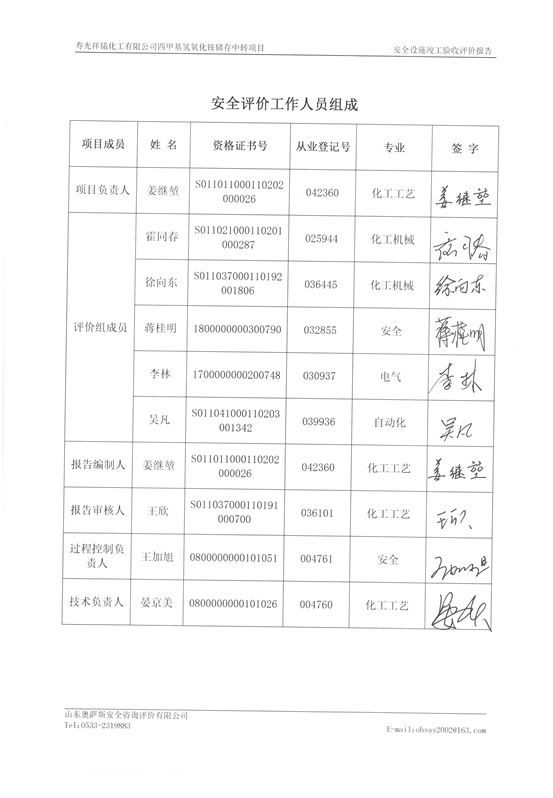 寿光祥铭化工有限公司四甲基氢氧化铵储存中转项目 安全设施竣工验收评价报告
安全评价工作人员组成
项目成员 姓 名 资格证书号 从业登记号 专业 签 字
项目负责人 姜继堃 S011011000110202000026 042360 化工工艺 姜继堃
评价组成员 霍同春 S011021000110201000287 025944 化工机械
徐向东 S011037000110192001806 036445 化工机械 徐向东
蒋桂明 1800000000300790 032855 安全 蒋桂明
李林 1700000000200748 030937 电气 李林
吴凡 S011041000110203001342 039936 自动化 吴凡
报告编制人 姜继堃 S011011000110202000026 042360 化工工艺 姜继堃
报告审核人 王欣 S011037000110191000700 036101 化工工艺 王欣
过程控制负责人 王加旭 0800000000101051 004761 安全
技术负责人 晏京美 0800000000101026 004760 化工工艺
山东奥萨斯安全咨询评价有限公司
Tel:0533-2319883 E-mail:ohsas2002@163.com